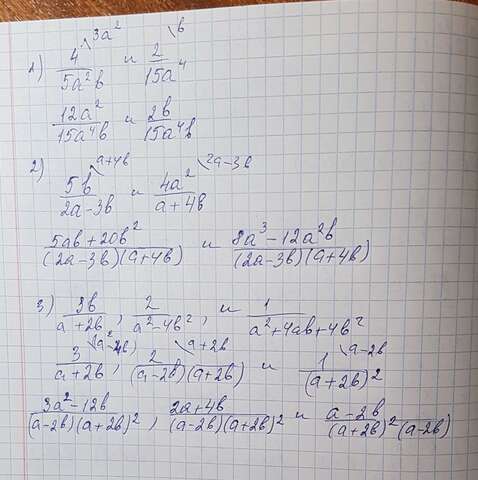 1) 4/5a²b \3a² и 2/15a⁴ \b
12a²/15a⁴b и 2b/15a⁴b
2) 5b/2a-3b \a+4b и 4a²/a+4b \2a-3b
5ab+20b²/(2a-3b)(a+4b) и 8a³-12a²b/(2a-3b)(a+4b)
3) 3b/a+2b, 2/a²-4b², и 1/a²+4ab+4b²
3/a+2b \(a²-4b), 2/(a-2b)(a+2b) \a+2b и 1/(a+2b)² \a-2b
3a²-12b/(a-2b)(a+2b)², 2a+4b/(a-2b)(a+2b)² и a-2b/(a+2b)²(a-2b)